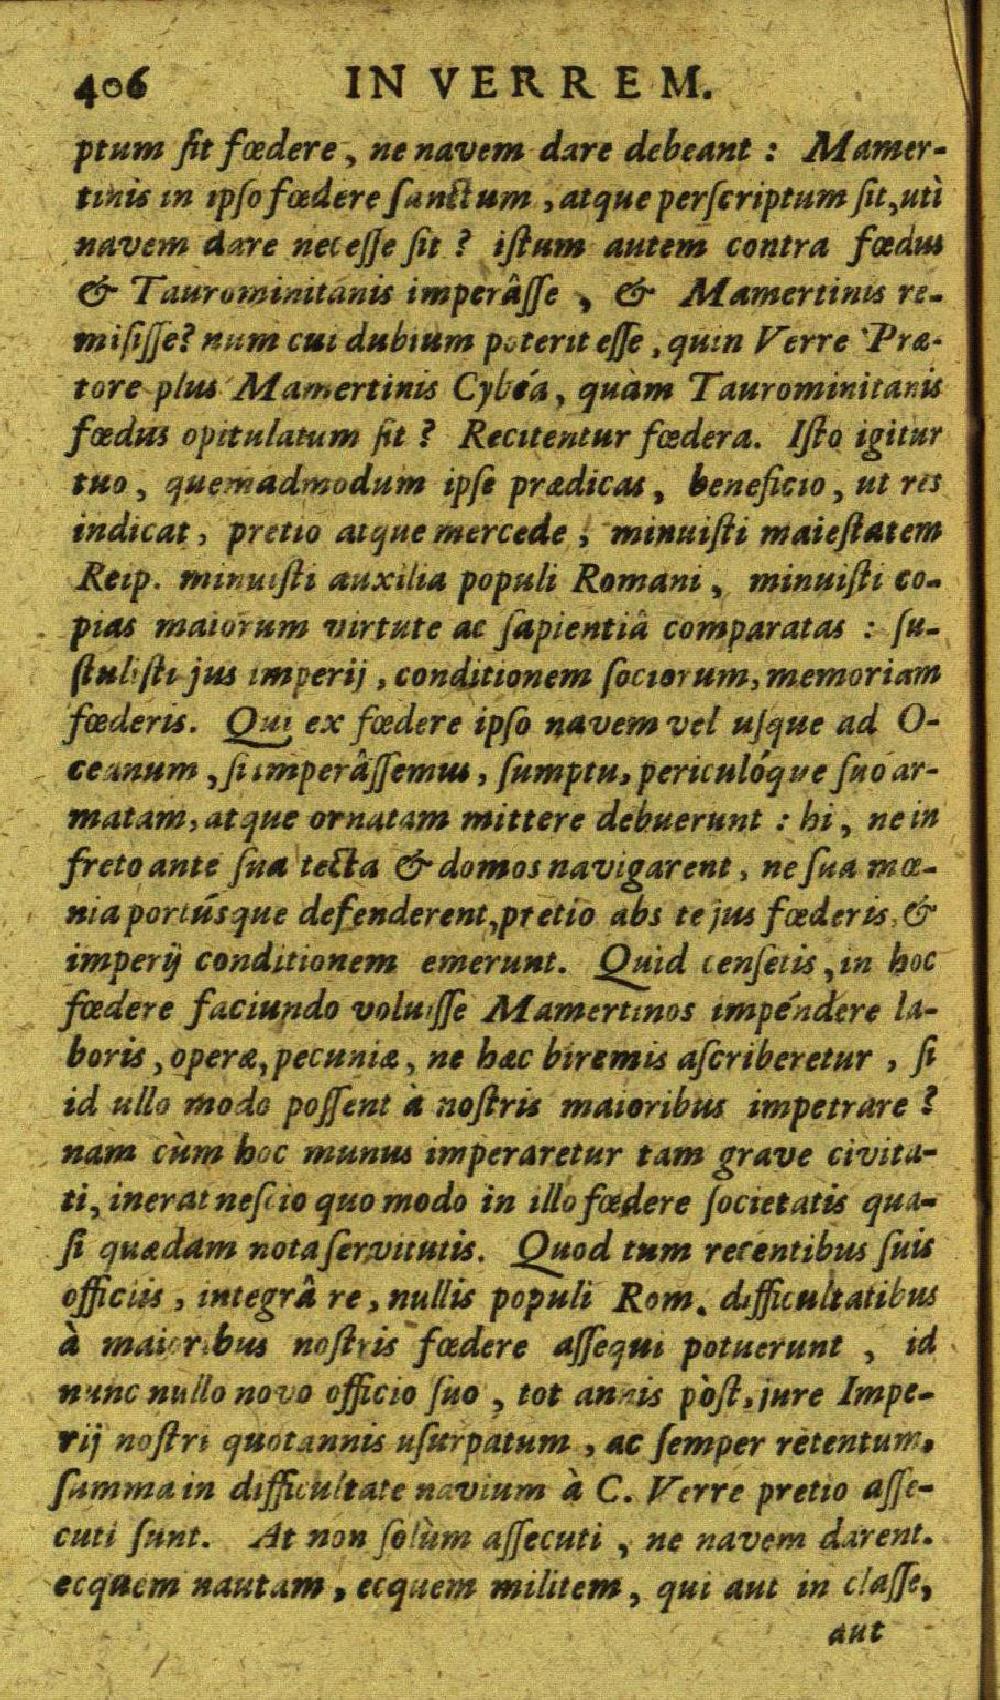 406 IN VERREM.
ptum ſit fœdere, ne navem dare debeant : Mamer-
tinis in ipſo fœdere ſanctum, atque perſcriptum ſit, utì
navem dare neceſſe ſit ? iſtum autem contra fœdus
& Taurominitanis imperâſſe, & Mamertinis re-
miſiſſe? num cui dubium poterit eſſe, quin Verre Præ-
tore plus Mamertinis Cybéa, quàm Taurominitanis
fœdus opitulatum ſit ? Recitentur fœdera. Iſto igitur
tuo, quemadmodum ipſe prædicas, beneficio, ut res
indicat, pretio atque mercede ; minuiſti maieſtatem
Reip. minuiſti auxilia populi Romani, minuiſti co-
pias maiorum virtute ac ſapientiâ comparatas : ſu-
ſtuliſti jus imperij, conditionem ſociorum, memoriam
fœderis. Qui ex fœdere ipſo navem vel uſque ad O-
ceanum, ſi imperâſſemus, ſumptu, periculóque ſuo ar-
matam, atque ornatam mittere debuerunt : hi, ne in
freto ante ſua tecta & domos navigarent, ne ſua mœ-
nia portúsque defenderent, pretio abs te jus fœderis, &
imperij conditionem emerunt. Quid cenſetis, in hoc
fœdere faciundo voluiſſe Mamertinos impéndere la-
boris, operæ, pecuniæ, ne hæc biremis aſcriberetur, ſi
id ullo modo poſſent à noſtris maioribus impetrare ?
nam cùm hoc munus imperaretur tam grave civita-
ti, inerat neſcio quo modo in illo fœdere ſocietatis qua-
ſi quædam nota ſervitutis. Quod tum recentibus ſuis
officiis, integrâ re, nullis populi Rom. difficultatibus
à maioribus noſtris fœdere aſſequi potuerunt, id
nunc nullo novo officio ſuo, tot annis pòſt, jure Impe-
rij noſtri quotannis uſurpatum, ac ſemper retentum,
ſumma in difficultate navium à C. Verre pretio aſſe-
cuti ſunt. At non ſolùm aſſecuti, ne navem darent.
ecquem nautam, ecquem militem, qui aut in claſſe,
aut